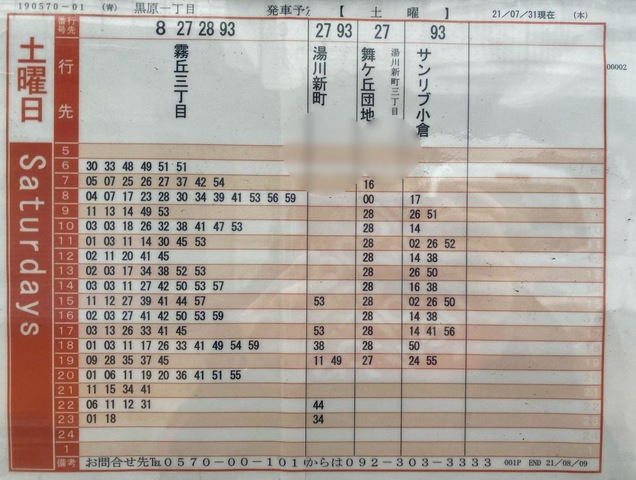 190570-01 (青) 黒原一丁目 発車予 【 土 曜 】 21/07/31現在 (木)
番号 行先 8 27 28 93 27 93 27 93
00002
土曜日
Saturdays
行先 霧丘三丁目 湯川新町 舞ケ丘団地 湯川新町三丁目 サンリブ小倉
5
6 30 33 48 49 51 51
7 05 07 25 26 27 37 42 54 16
8 04 07 17 23 28 30 34 39 41 53 56 59 00 17
9 11 13 14 49 53 28 26 51
10 03 03 18 26 32 38 41 47 53 28 14
11 01 03 11 14 30 45 53 28 02 26 52
12 02 11 20 41 45 28 14 38
13 02 03 17 34 38 52 53 28 26 50
14 03 03 11 27 42 50 53 57 28 16 38
15 11 12 27 39 41 44 57 53 28 02 26 50
16 02 03 27 41 42 50 53 59 28 14 38
17 03 13 26 33 41 45 53 28 14 41 56
18 01 03 11 17 26 33 41 49 54 59 38 28 50
19 09 28 35 37 45 11 49 27 24 55
20 01 06 11 19 20 36 41 51 55
21 11 15 34 41
22 06 11 12 31 44
23 01 18 34
24
1
備考 お問合せ先℡0570-00-101 からは092-303-3333 001P END 21/08/09